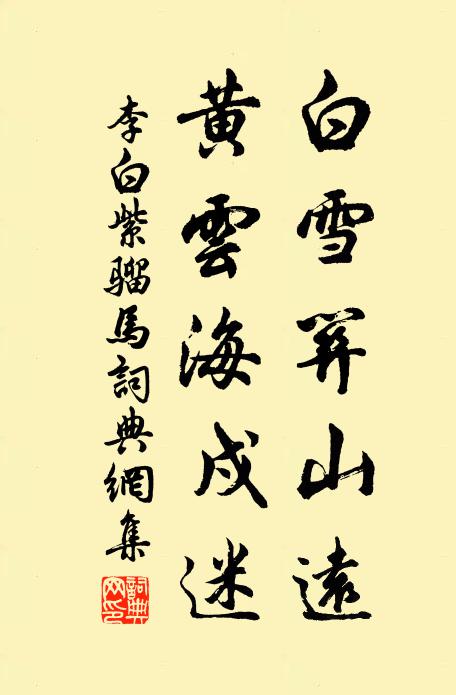 白雪關山遠
黄雲海戍迷
李白紫騮馬詞典網集
詞典网印